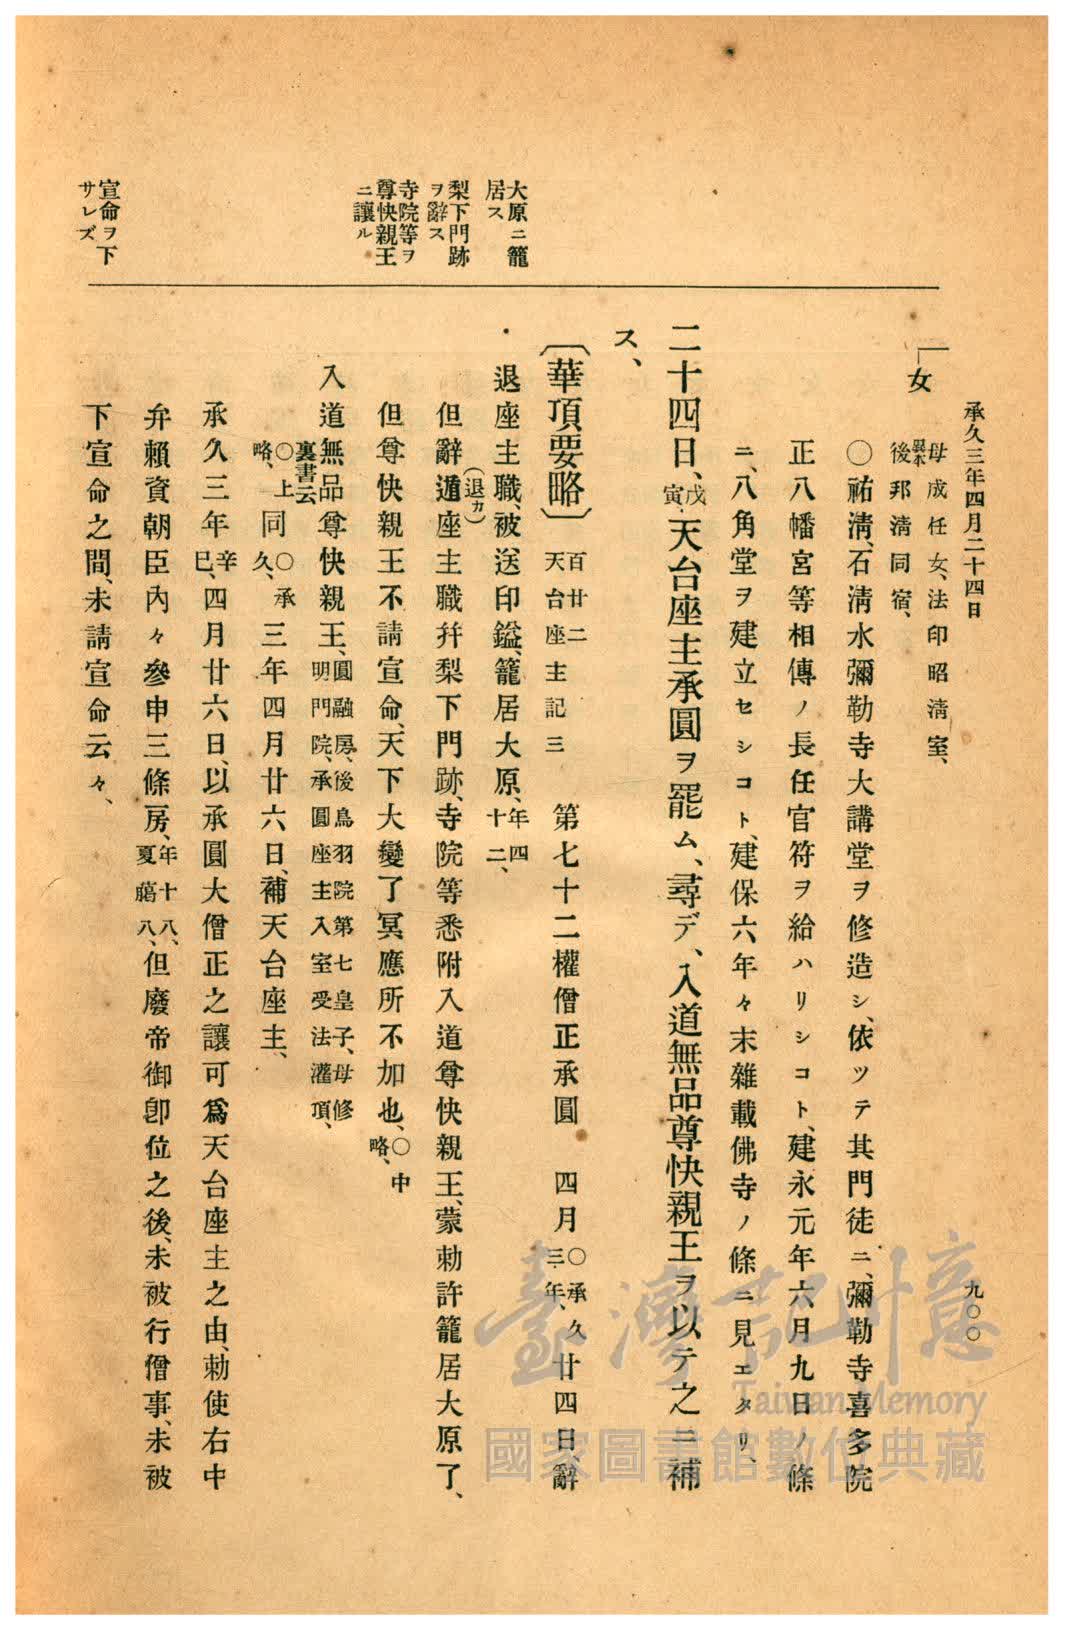 承久三年四月二十四日
九〇〇
女
母成任女、法印昭淸室、
異本
後邦淸同宿、
〇祐淸、石淸水彌勒寺大講堂ヲ修造シ、依ツテ其門徒ニ、彌勒寺喜多院
正八幡宮等相傳ノ長任官符ヲ給ハリシコト、建永元年六月九日ノ條
ニ、八角堂ヲ建立セシコト、建保六年々末雜載佛寺ノ條ニ見エタリ、
二十四日、戊寅、天台座主承圓ヲ罷ム、尋デ、入道無品尊快親王ヲ以テ之ニ補
ス、
〔華頂要略〕百廿二 天台座主記三 第七十二權僧正承圓 四月〇承久三年、廿四日、辭
退座主職、被送印鎰、籠居大原、年四十二、
但辭遁(退カ)座主職幷梨下門跡、寺院等悉附入道尊快親王、蒙勅許籠居大原了、
但尊快親王不請宣命、天下大變了冥應所不加也、〇中略、
入道無品尊快親王、圓融房、後鳥羽院第七皇子、母修明門院、承圓座主入室受法灌頂、
裏書云
〇上略、同〇承久、三年四月廿六日、補天台座主、
承久三年辛巳、四月廿六日、以承圓大僧正之讓可爲天台座主之由、勅使右中
弁賴資朝臣內々參申三條房、年十八、夏﨟八、但廢帝御卽位之後、未被行僧事、未被
下宣命之間、未請宣命云々、
大原ニ籠
居ス
梨下門跡
ヲ辭ス
寺院等ヲ
尊快親王
ニ讓ル
宣命ヲ下
サレズ
臺灣記憶
Taiwan Memory
國家圖書館數位典藏